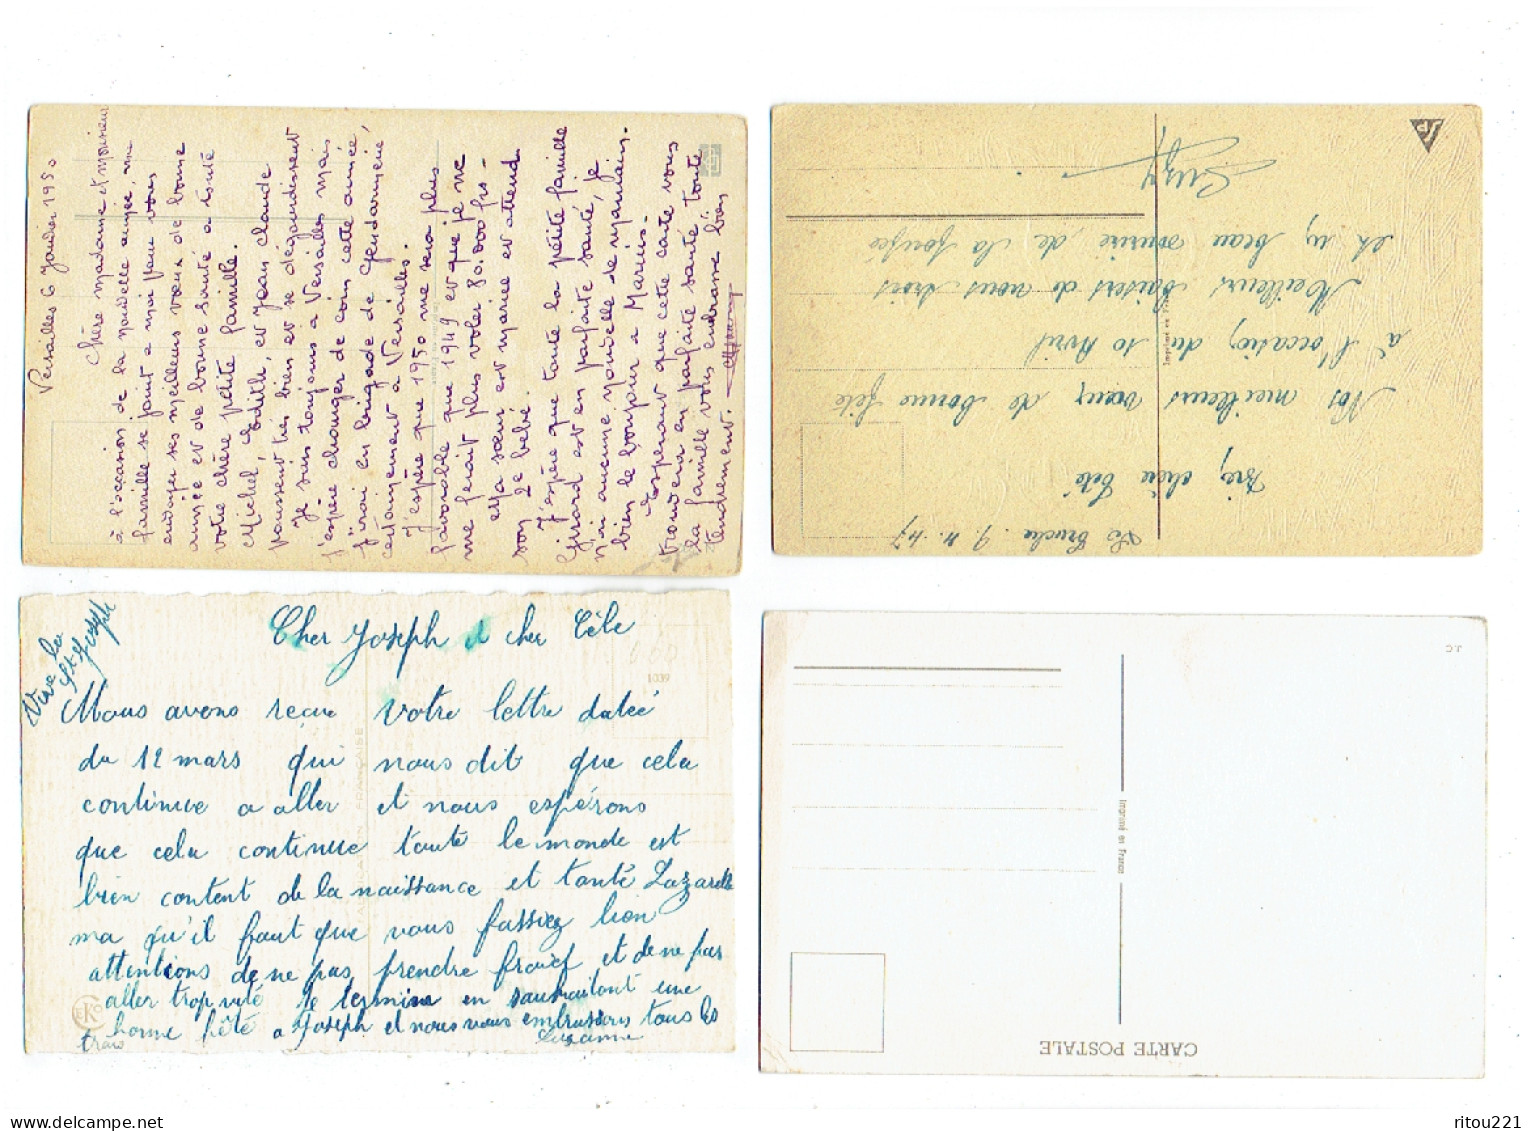 Versailles 6 Janvier 1950
Chère madame et monsieur
à l'occasion de la nouvelle année, ma
famille se joint a moi pour vous
envoyer ses meilleurs vœux de bonne
année et de bonne santé a toute
votre chère petite famille.
Michel, Edith, et Jean claude
poussent très bien et se dégourdissent
Je suis toujours a Versailles mais
j'espère changer de coin cette année,
j'irai en brigade de gendarmerie
certainement a Versailles.
J'espère que 1950 me sera plus
favorable que 1949 et que je ne
me ferait plus voler 80.000 frs-
Ma sœur est mariée et attend
son 2e bébé.
J'espère que toute la petite famille
Girard est en parfaite santé, je
n'ai aucune nouvelle de
bien le bonjour a Marius.
Espérant que cette carte vous
trouvera en parfaite santé toute
la famille vous embrasse bien
tendrement.
9.4.47
Très chère Célé
Nos meilleurs vœux de bonne fête
à l'occasion du 10 Avril
Meilleurs baisers de nous trois
et un beau sourire de la
Suzy
Imprimé en France
Vive la
St Joseph
Cher Joseph et cher Célé
1039
Nous avons reçue votre lettre datée
du 12 mars qui nous dit que cela
continue a aller et nous espérons
que cela continue toute le monde est
bien content de la naissance et tante Lazarelle
ma qu'il faut que vous fassiez bien
attentions de ne pas prendre froid et de ne pas
aller trop vite Je termine en souhaitant une
bonne fêté a Joseph et nous vous embrassons tous les
trois
Suzanne
FABRICATION FRANÇAISE
EKO
J.C
Imprimé en France
CARTE POSTALE
ritou221